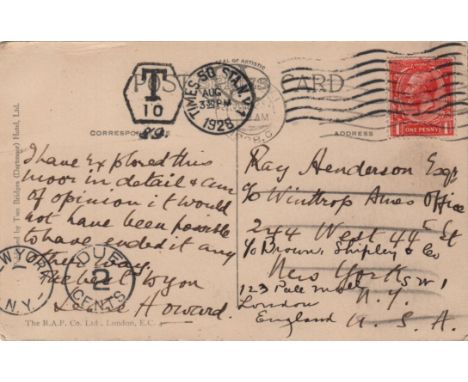 POST CARD
T
10
TIMES SQ. STA. N.Y.
AUG
3 PM
1928
AM
CORRESPONDENCE
ADDRESS
ONE PENNY
I have Explored this
moor in detail & am
of opinion it would
not have been possible
to have ended it any
other way.
best to you
Howard.
NEW YORK
N.Y.
DUE
2
CENTS
Ray Henderson Esqr
c/o Winthrop Ames Office
244 West 44th St
c/o Brown Shipley & Co
New York
123 Pall Mall S W 1
N.Y.
London
England
U. S. A.
by Two Bridges (Dartmoor) Hotel, Ltd.
The R.A.P. Co. Ltd., London, E.C.